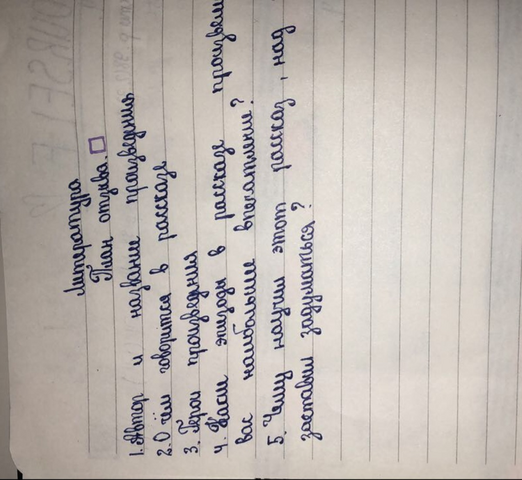 Литература
План отзыва.
1. Автор и название произведения
2. О чём говорится в рассказе
3. Герои произведения
4. Какие эпизоды в рассказе произвели
вас наибольшее впечатление?
5. Чему научил этот рассказ, над
заставил задуматься?